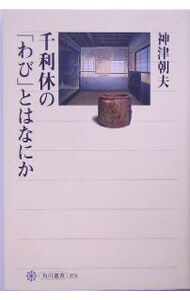 千利休の
「わび」とはなにか
神津朝夫
角川選書